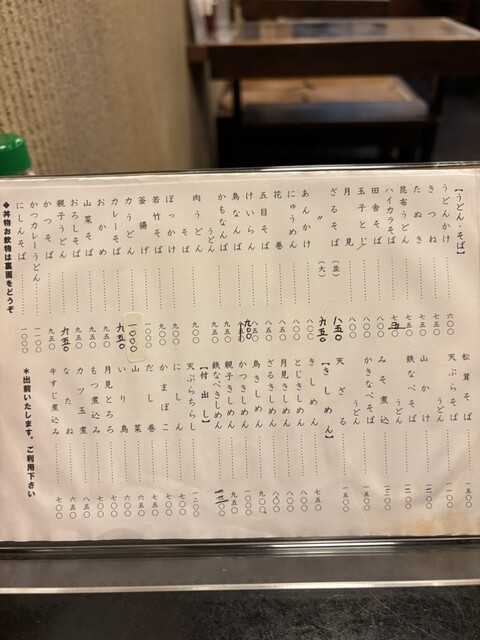 【うどん・そば】
うどんかけ 六〇〇
きつね 七五〇
たぬき 七五〇
昆布うどん 七五〇
ハイカラそば
田舎そば 八〇〇
玉子とじ 八〇〇
月見
ざるそば (並) 八五〇
〃 (大) 九五〇
あんかけ 八〇〇
にゅうめん 八〇〇
花巻 八〇〇
五目そば 八五〇
けいらん 八五〇
鳥なんば 九〇〇
かもなんば 九五〇
肉うどん そば 九〇〇
ぼっかけ 九〇〇
若竹そば 九〇〇
釜揚げ 一〇〇〇
力うどん 1000
カレーそば 九五〇
おかめ 九五〇
山菜そば 九五〇
おろしそば 九五〇
親子うどん 九五〇
かつそば 九五〇
かつカレーうどん 一一〇〇
にしんそば 一〇〇〇
◆丼物お飲物は裏面をどうぞ
松茸そば 一五〇〇
天ぷらそば うどん 一一〇〇
山かけ 一一〇〇
鉄なべそば うどん 一二〇〇
みそ煮込 一三〇〇
かきなべそば うどん 一五〇〇
天ざる 一五〇〇
【きしめん】
きしめん 七五〇
とじきしめん 八〇〇
月見きしめん 八〇〇
ざるきしめん 八〇〇
鳥きしめん 九〇〇
かつきしめん 一〇〇〇
親子きしめん 九五〇
鉄なべきしめん
【付出し】
天ぷらちらし 一二〇〇
にしん 七〇〇
かまぼこ 七〇〇
だし巻 六五〇
山菜 六五〇
いり鳥 七〇〇
月見とろろ 七〇〇
もつ煮込み 七〇〇
カツ玉煮 八五〇
なたね 六五〇
牛すじ煮込み 七〇〇
＊出前いたします。ご利用下さい